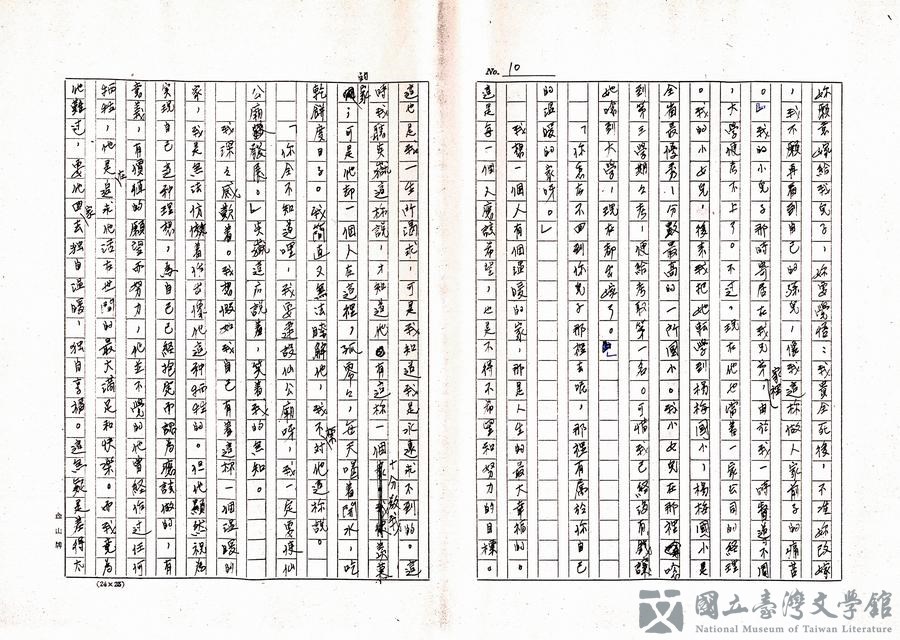 No. 10
妳願意嫁給我兒子，妳要覺悟：我貴全死後，不准妳改嫁
，我不願再看到自己的孫兒，像我這樣做人家前子的痛苦
。我的小兒子那時寄居在我兄弟家裡，由於我一時窮造不周
，大學便考不上了。不過，現在他也當著一家公司的經理
。我的小女兒，後來我把她轉學到楊梅國小，楊梅國小是
全省最優秀，分數最高的一所國小。我小女兒在那裡唸
到第三學期月考，便給考取第一名。可惜我已經沒有錢讓
她唸到大學，現在都出嫁了。」
「你怎麼不回到你兒子那裡去呢，那裡有屬於你自己
的溫暖的家呀。」
我想一個人有個溫暖的家，那是人生的最大幸福的。
這是每一個人應該希望，也是不得不希望和努力的目標。
這也是我一生所渴求，可是我知道我是永遠求不到的。這
時我聽吳巍這樣說，才知道他有這樣一個十分放我羨慕
的家；可是他卻一個人在這裡，孤零零，每天喝著開水，吃
乾餅度日子。我簡直又無法瞭解他，我不禁對他這樣說。
「你全不知道哩，我要建設仙公廟呀，我一定要使仙
公廟發展。」吳巍這応說著，笑著我的無知。
我深深感歎著。我想假如我自己有著這樣一個溫暖的
家，我是無法彷彿著作出像他這種犧牲的。但他顯然視為
實現自己這種理想，為自己已經抱定而認為應該做的，有
意義，有價值的願望而努力，他並不覺的他曾經作過任何
犧牲，他是在追求他活在世間的最大滿足和快樂。而我竟為
他難過，要他回家去獨自溫暖，獨自享福。這無寧是差得太
金山牌
(24×25)
國立臺灣文學館
National Museum of Taiwan Literature